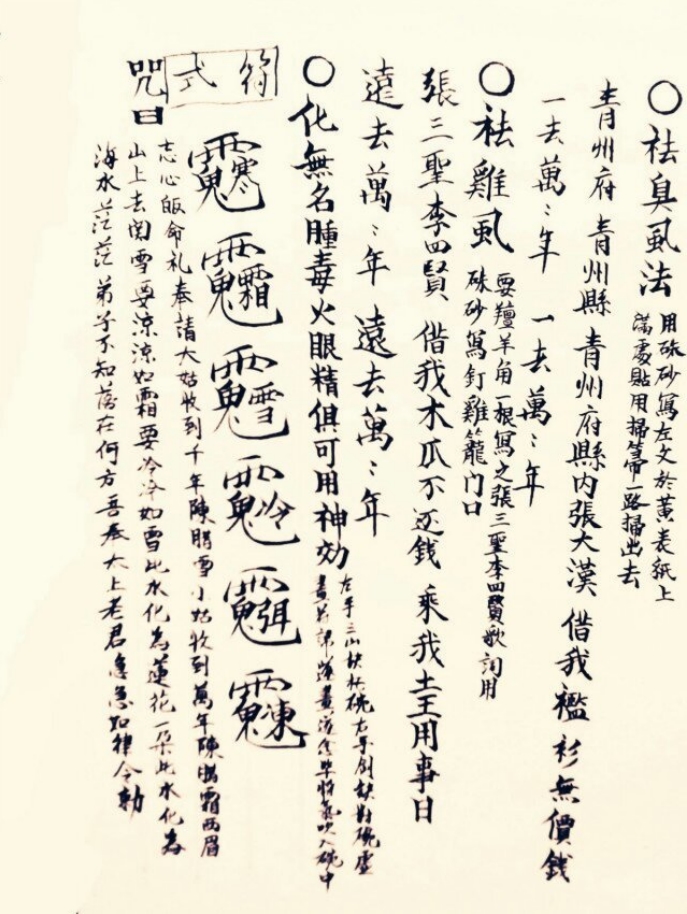 ○祛臭虱法
用硃砂寫左文於黃表紙上
滿處貼用掃箒一路掃出去
青州府青州縣青州府縣內張大漢借我襤衫無價錢
一去萬〻年 一去萬〻年
○祛雞虱
要羶羊角一根寫之張三聖李四賢歌詞用
硃砂寫釘雞籠门口
張三聖李四賢借我木瓜不还錢乘我土王用事日
遠去萬〻年遠去萬〻年
○化無名腫毒火眼精俱可用神効
左手三山訣杯碗右手劍訣對碗虛
畫符諱
畢將氣吹入碗中
符式
咒曰
志心皈命礼奉請大姑收到千年陳臘雪小姑收到萬年陳臘霜西眉
山上去関雪要涼涼如霜要冷冷如雪此水化為蓮花一朵此水化為
海水茫茫弟子不知落在何方吾奉太上老君急急如律令勅